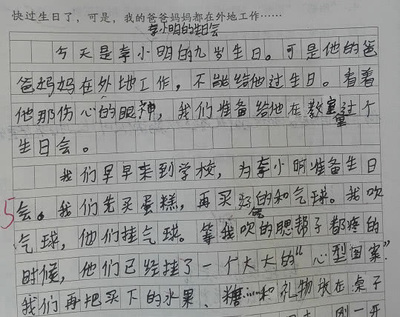 快过生日了，可是，我的爸爸妈妈都在外地工作……
李小明的生日会
今天是李小明的九岁生日。可是他的爸
爸妈妈在外地工作，不能给他过生日。看着
他那伤心的眼神，我们准备给他在教室过个
生日会。
我们早早来到学校，为李小明准备生日
5
会。我们先买蛋糕，再买的和气球。我吹
气球，他们挂气球。等我吹的腮帮子都疼的
时候，他们已经挂了一个大大的“心型图案”
我们再把买下的水果、糖……和礼物放在桌子
刚一开